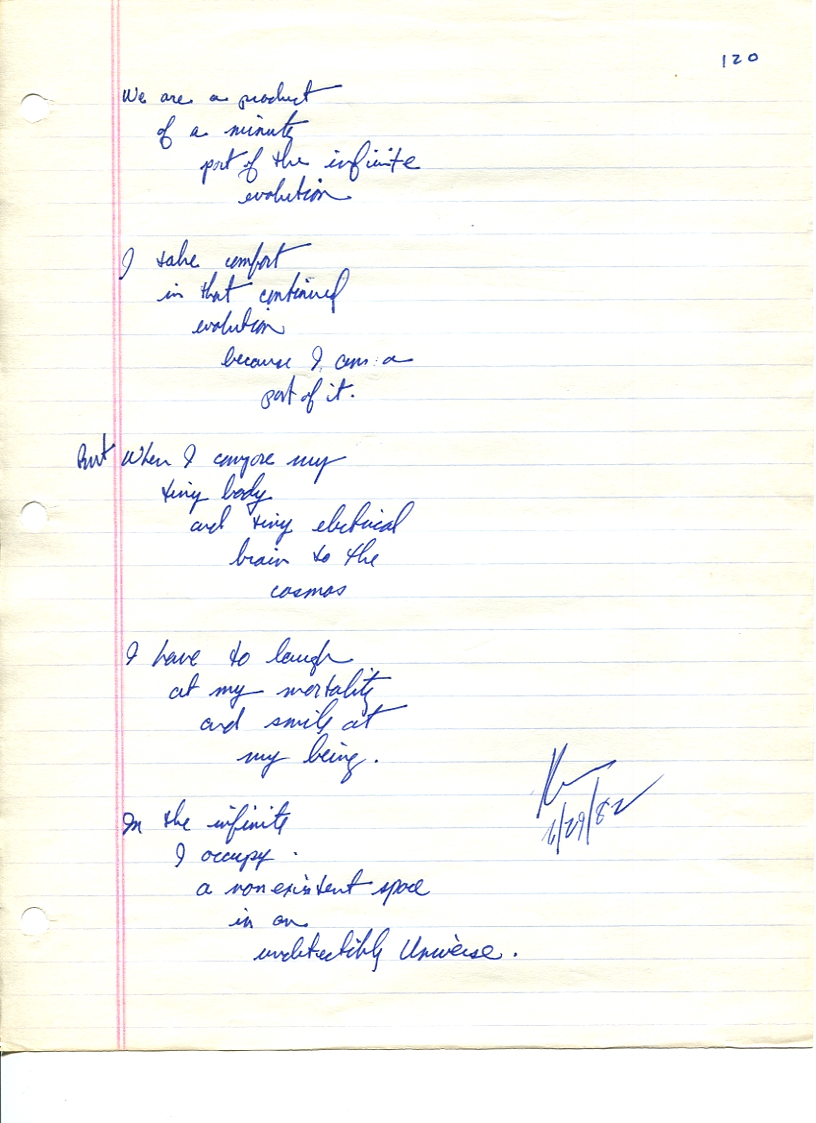 120
We are a product
of a minute
part of the infinite
evolution
I take comfort
in that continued
evolution
because I am a
part of it.
But When I compare my
tiny body
and tiny electrical
brain to the
cosmos
I have to laugh
at my mortality
and smile at
my being.
6/29/82
In the infinite
I occupy
a nonexistent space
in an
undetectibly Universe.